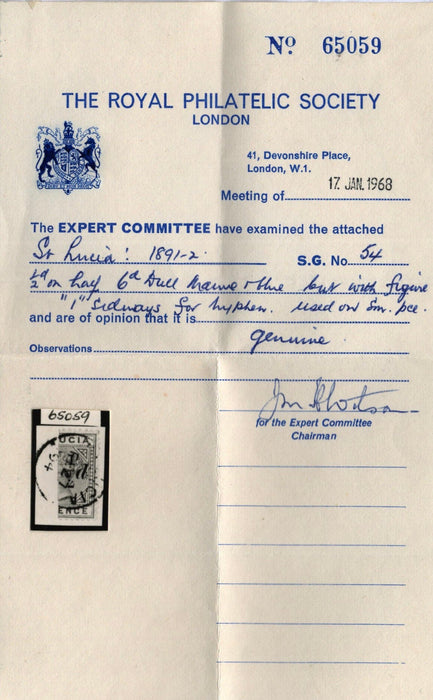 Nº 65059
THE ROYAL PHILATELIC SOCIETY
LONDON
41, Devonshire Place,
London, W.1.
Meeting of 17. JAN. 1968
The EXPERT COMMITTEE have examined the attached
St Lucia: 1891-2. S.G. No. 54
½d on half 6d Dull Mauve & blue but with figure
"1" sideways for hyphen. used on sm. pce.
and are of opinion that it is
genuine.
Observations
for the Expert Committee
Chairman
65059
UCIA
ENCE